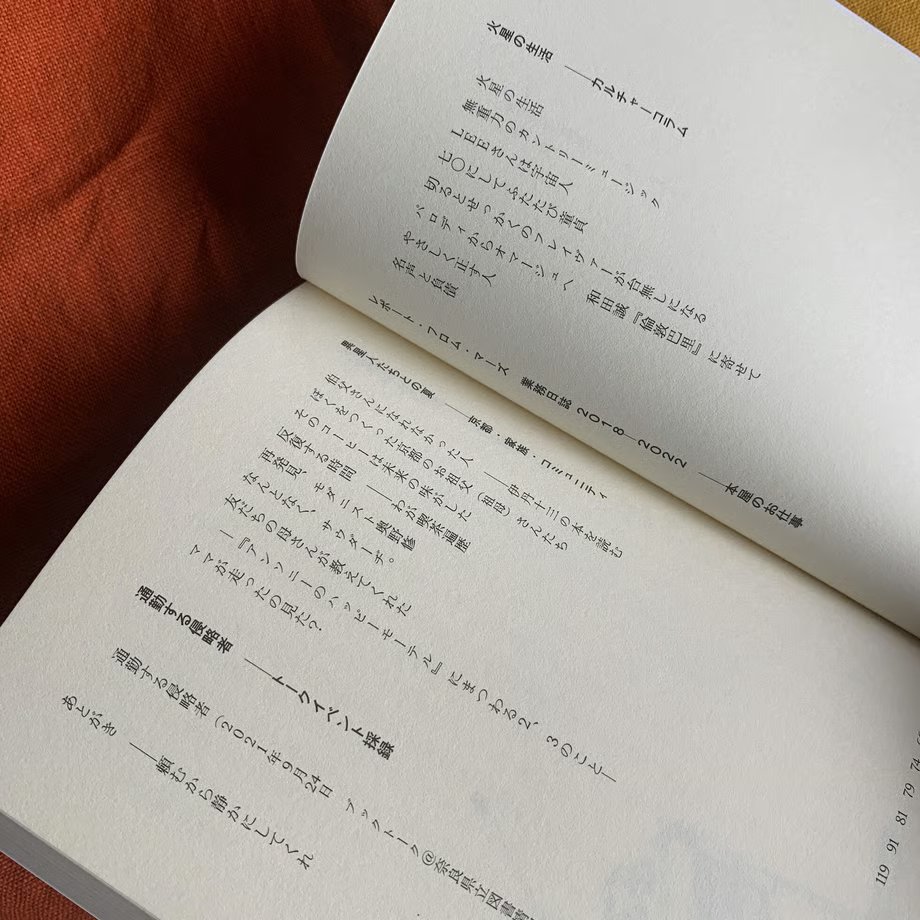 火星の生活 ──カルチャーコラム
火星の生活
無重力のカントリーミュージック
LEEさんは宇宙人
七〇にしてふたたび童貞
切るとせっかくのフレイヴァーが台無しになる
パロディからオマージュへ 和田誠『倫敦巴里』に寄せて
やさしく正す人
名声と負債
レポート・フロム・マーズ 業務日誌 2018―2022 ──本屋のお仕事
異星人たちとの夏 ──京都・家族・コミュニティ
伯父さんになれなかった人 ──伊丹十三の本を読む
ぼくをつくった京都のお祖父（祖母）さんたち
そのコーヒーは未来の味がした
反復する時間 ──わが喫茶遍歴
再発見、モダニスト奥野修
なんとなく、サウダーヂ。
友だちの母さんが教えてくれた
―『アンソニーのハッピーモーテル』にまつわる2、3のこと―
ママが走ったの見た？
通勤する侵略者 ──トークイベント採録
通勤する侵略者（2021年9月24日 ブックトーク@奈良県立図書情
あとがき ──頼むから静かにしてくれ
74
79
81
91
119